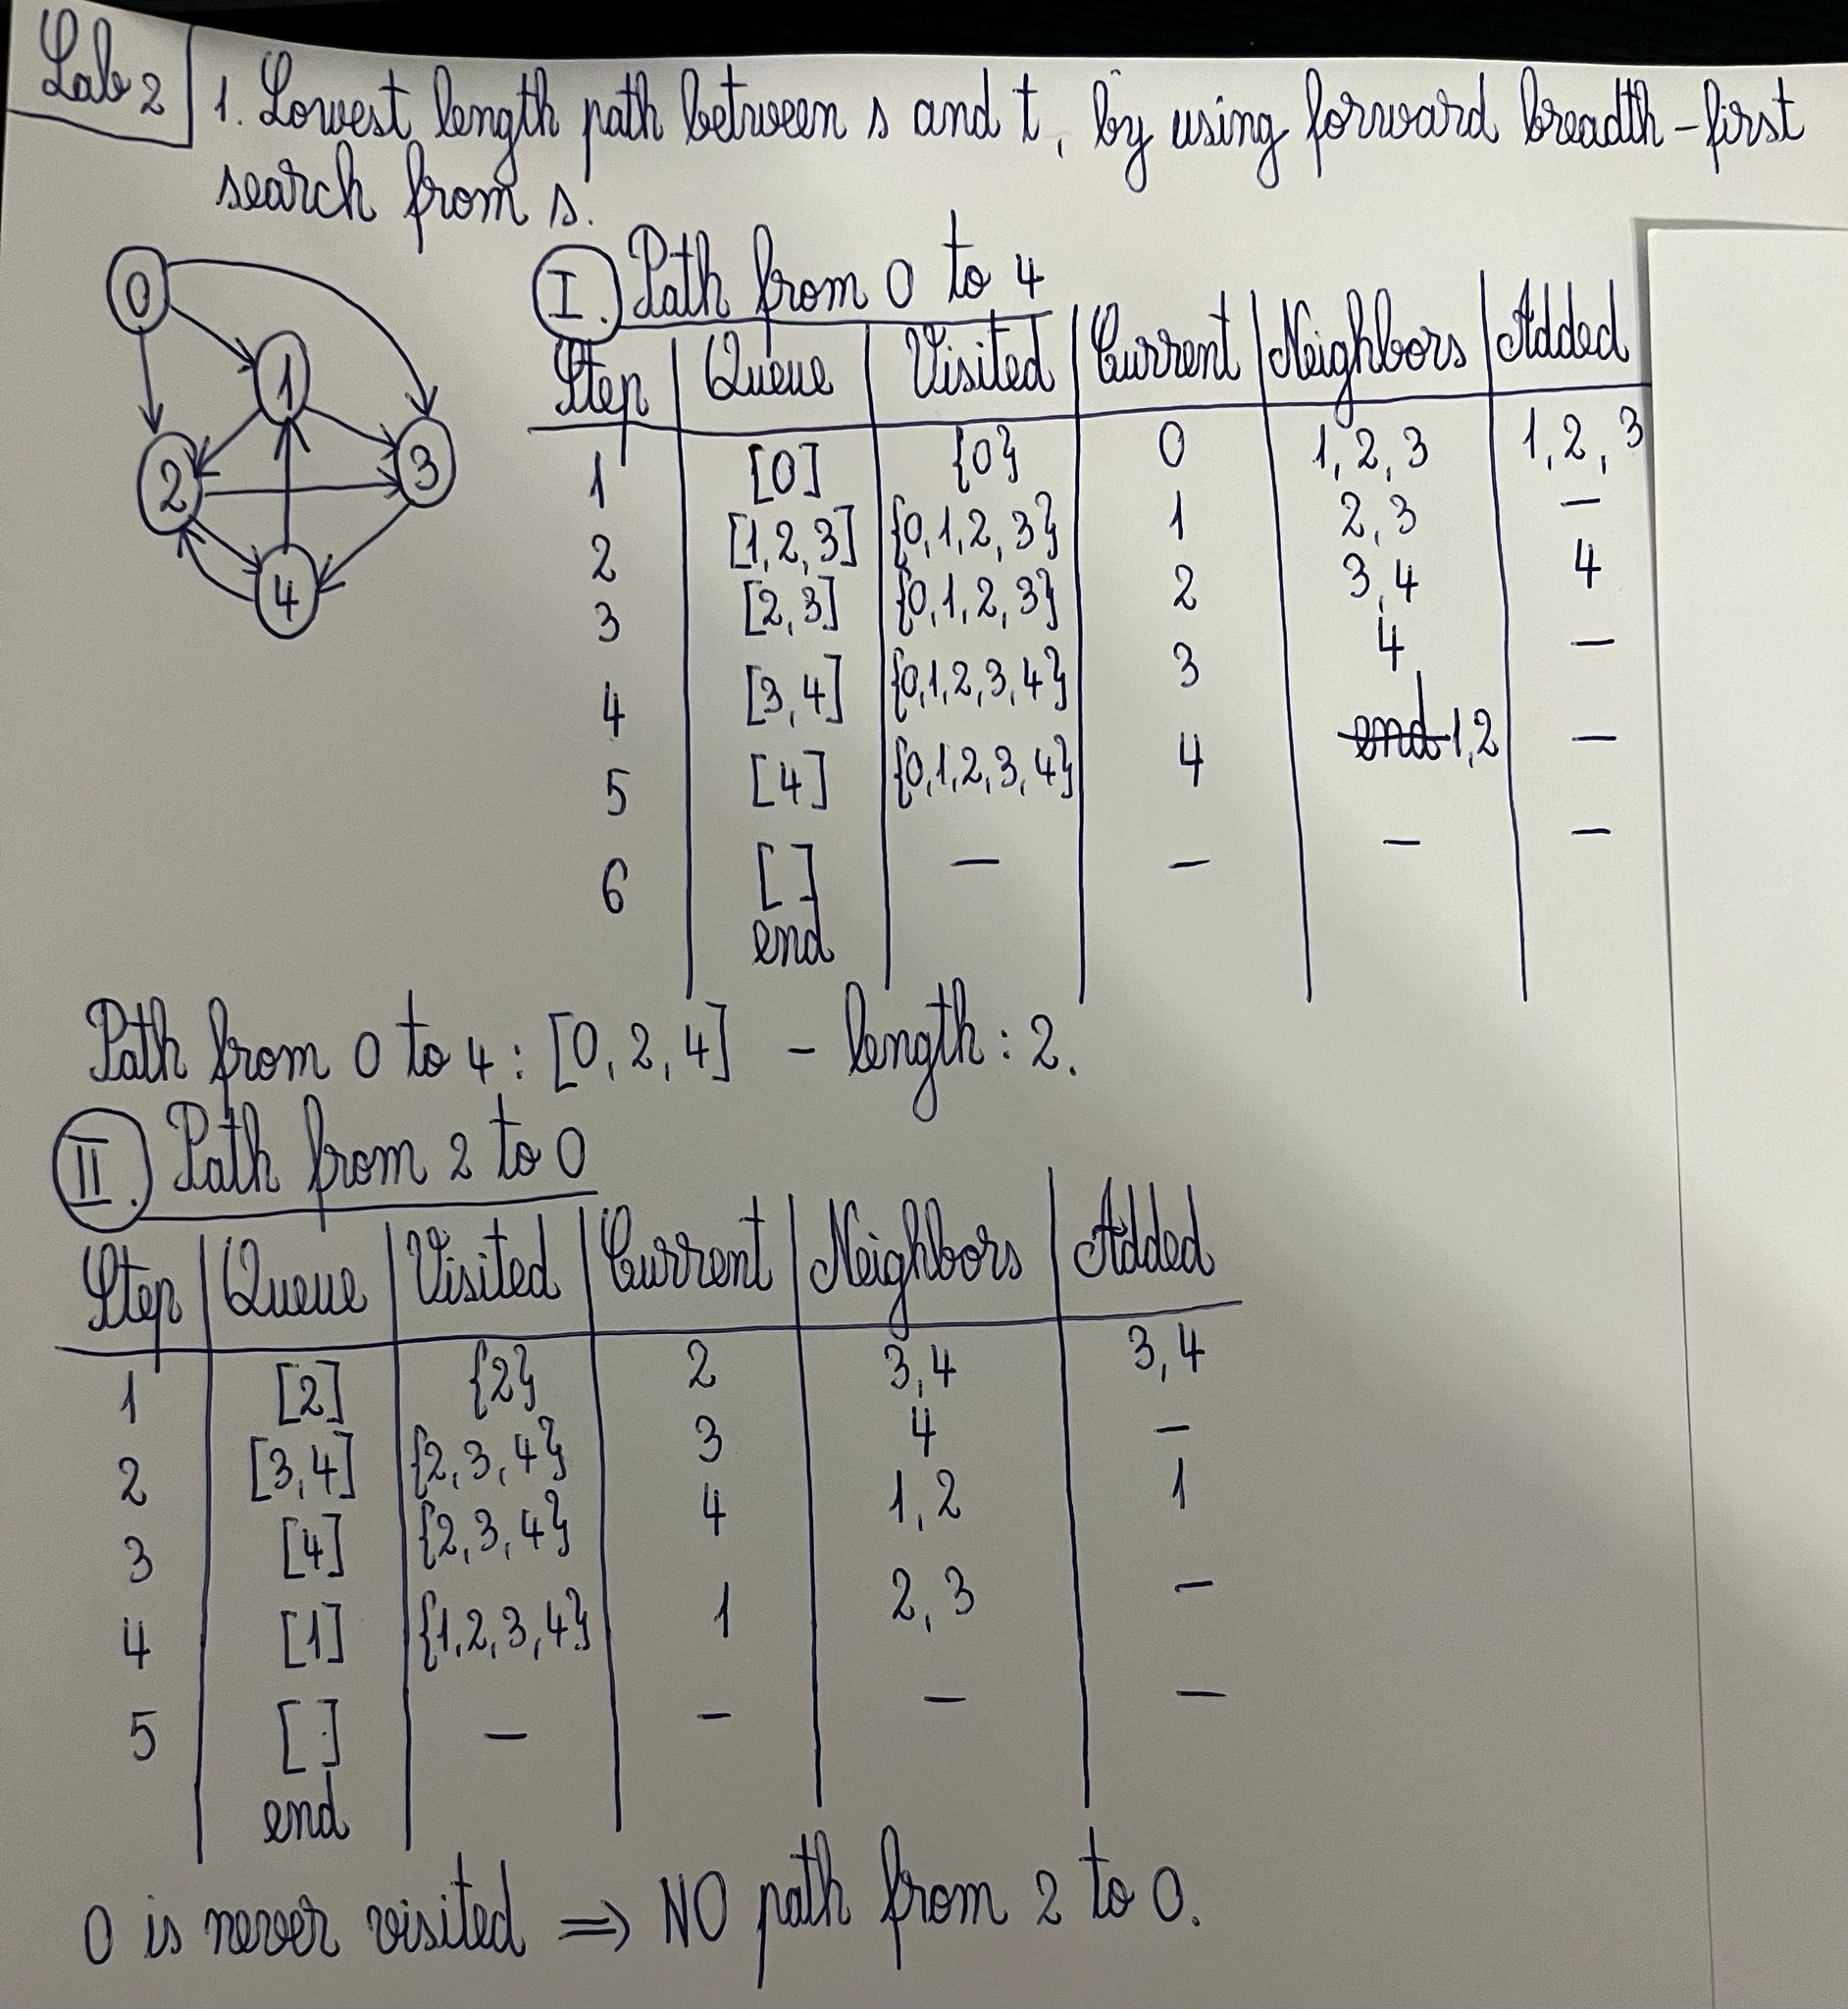 Lab 2
1. Lowest length path between s and t, by using forward breadth-first
search from s.
0
1
2
3
4
I. Path from 0 to 4
Step | Queue | Visited | Current | Neighbors | Added
1 | [0] | {0} | 0 | 1, 2, 3 | 1, 2, 3
2 | [1,2,3] | {0,1,2,3} | 1 | 2, 3 | —
3 | [2,3] | {0,1,2,3} | 2 | 3,4 | 4
4 | [3,4] | {0,1,2,3,4} | 3 | 4 | —
5 | [4] | {0,1,2,3,4} | 4 | ~~end~~ 1,2 | —
6 | [ ] | — | — | — | —
end
Path from 0 to 4: [0, 2, 4] - length: 2.
II. Path from 2 to 0
Step | Queue | Visited | Current | Neighbors | Added
1 | [2] | {2} | 2 | 3,4 | 3,4
2 | [3,4] | {2,3,4} | 3 | 4 | —
3 | [4] | {2,3,4} | 4 | 1,2 | 1
4 | [1] | {1,2,3,4} | 1 | 2, 3 | —
5 | [ ] | — | — | — | —
end
0 is never visited ⇒ NO path from 2 to 0.